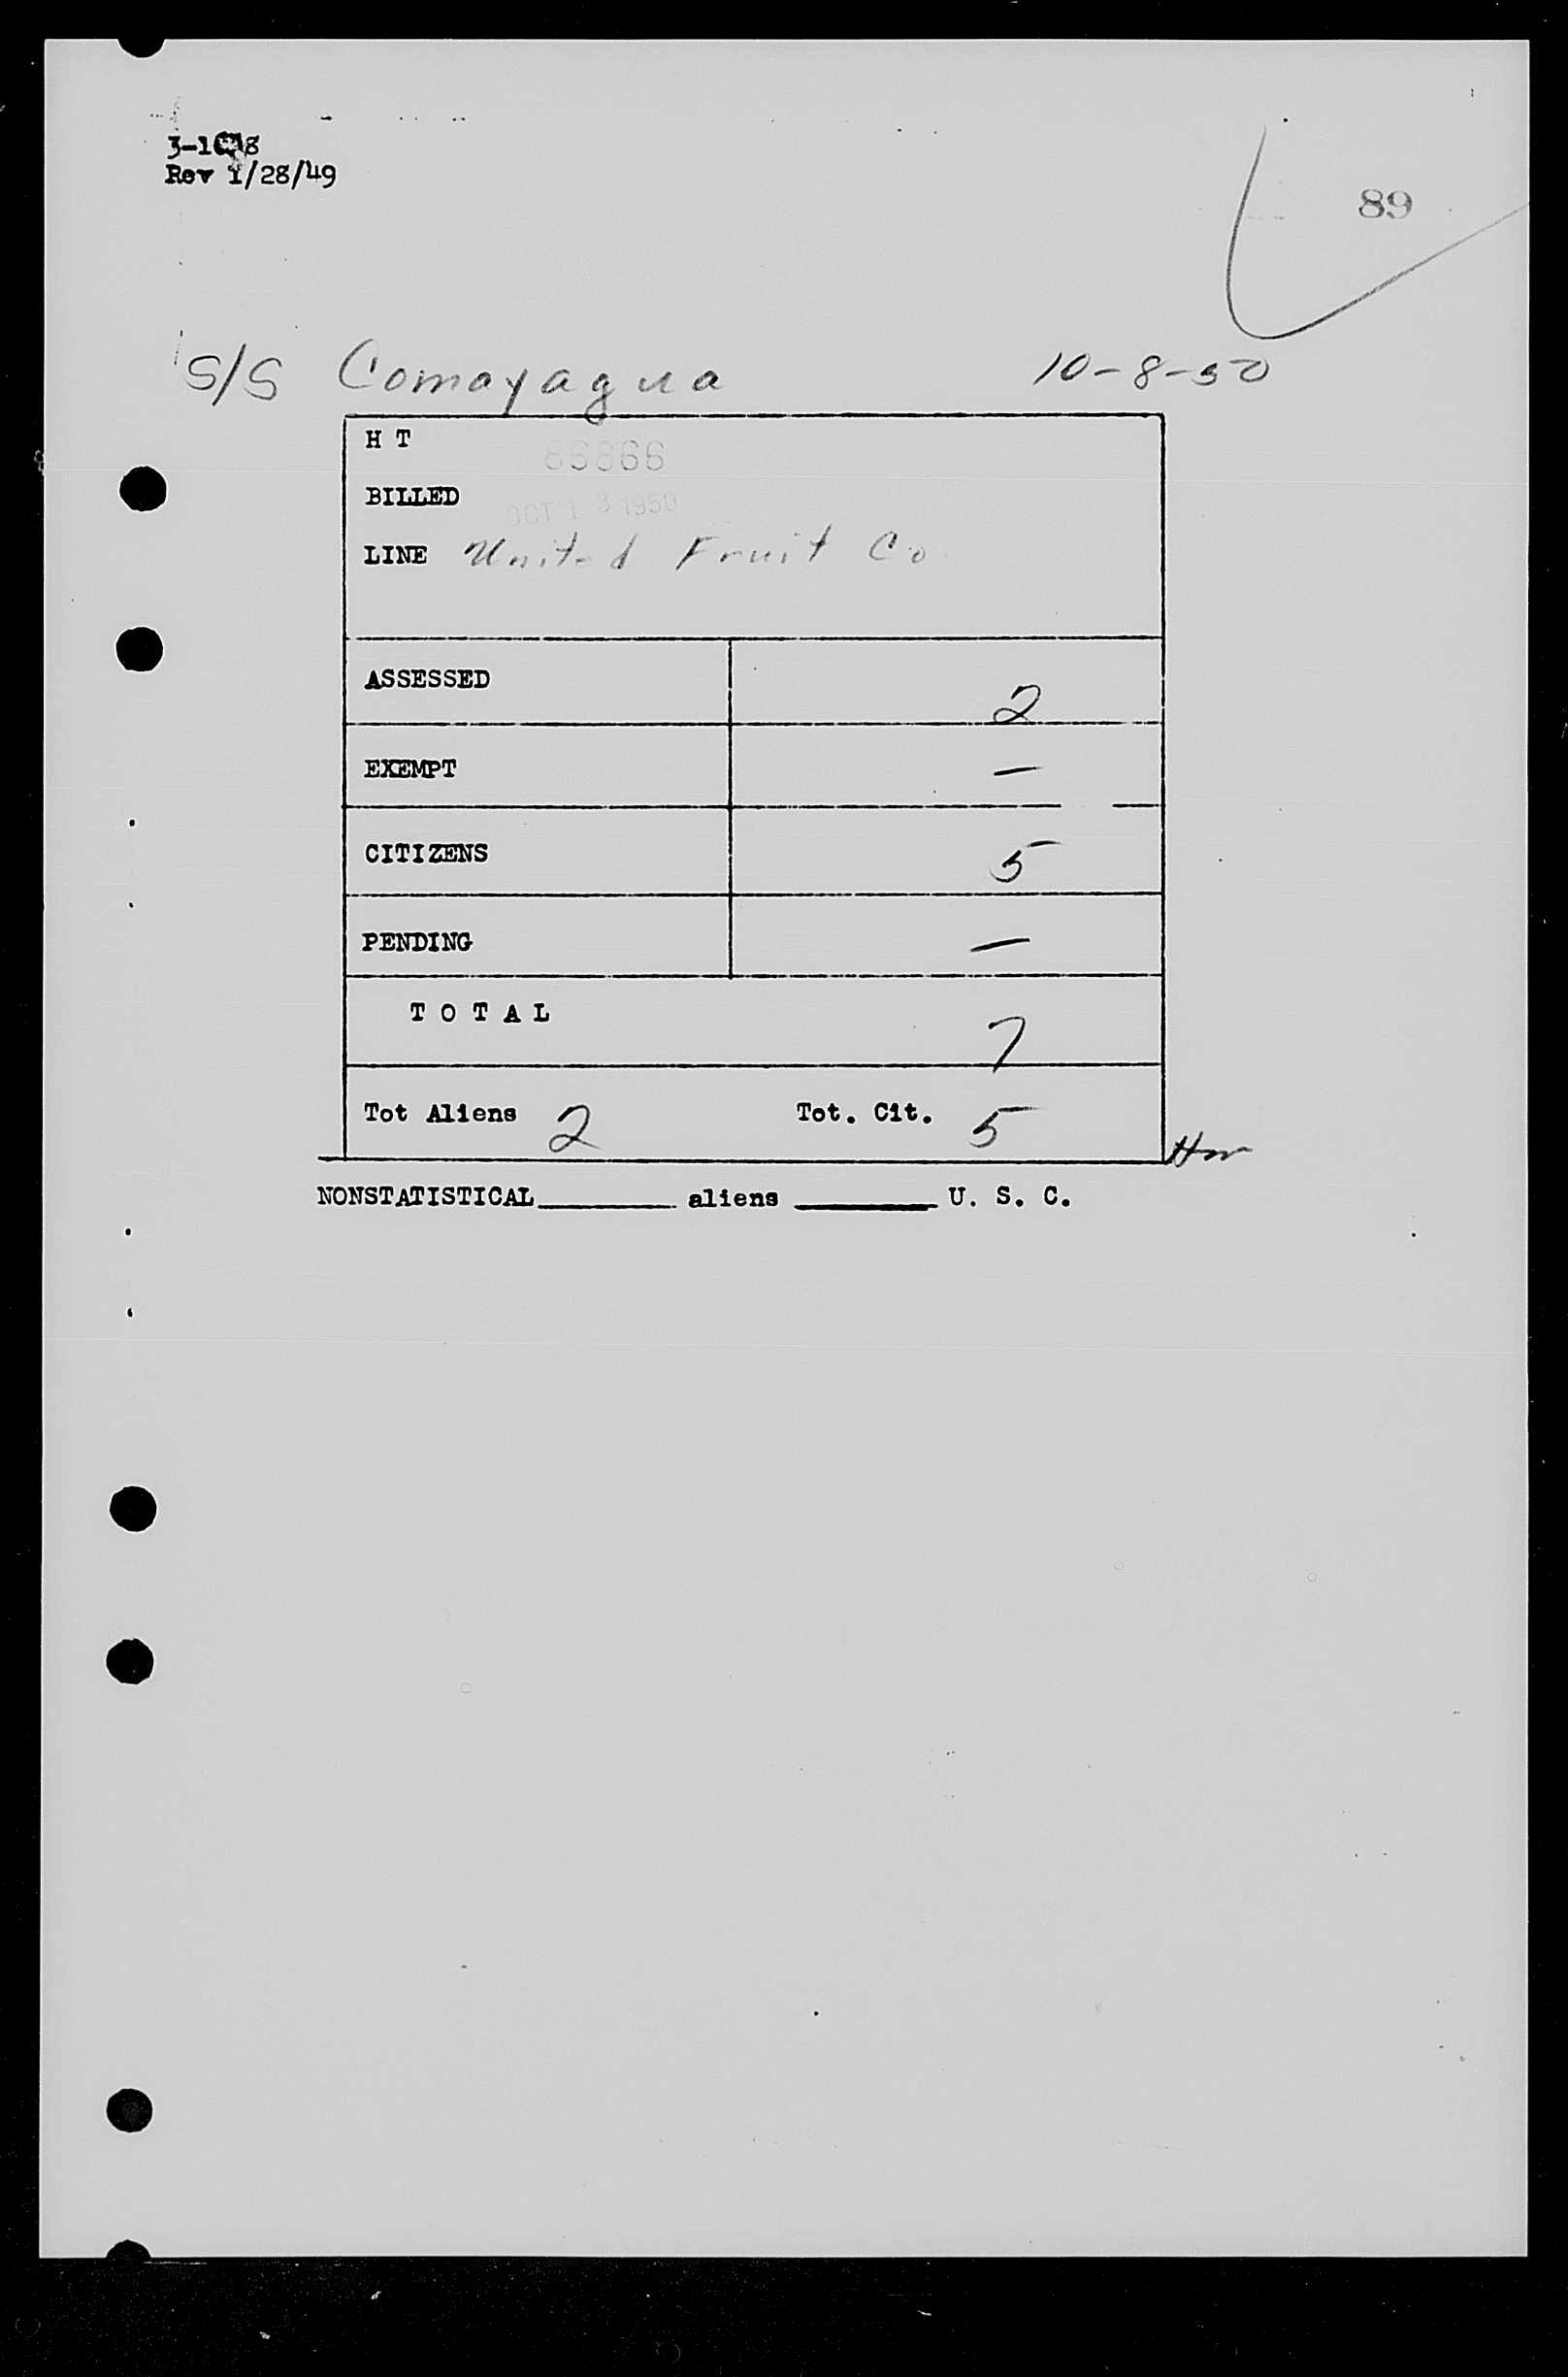 Rev 1/28/49
89
S/S Comayagua 10-8-50
H T
BILLED OCT 13 1950
LINE United Fruit Co
ASSESSED 2
EXEMPT —
CITIZENS 5
PENDING —
T O T A L 7
Tot Aliens 2 Tot. Cit. 5
NONSTATISTICAL________ aliens ________ U. S. C.